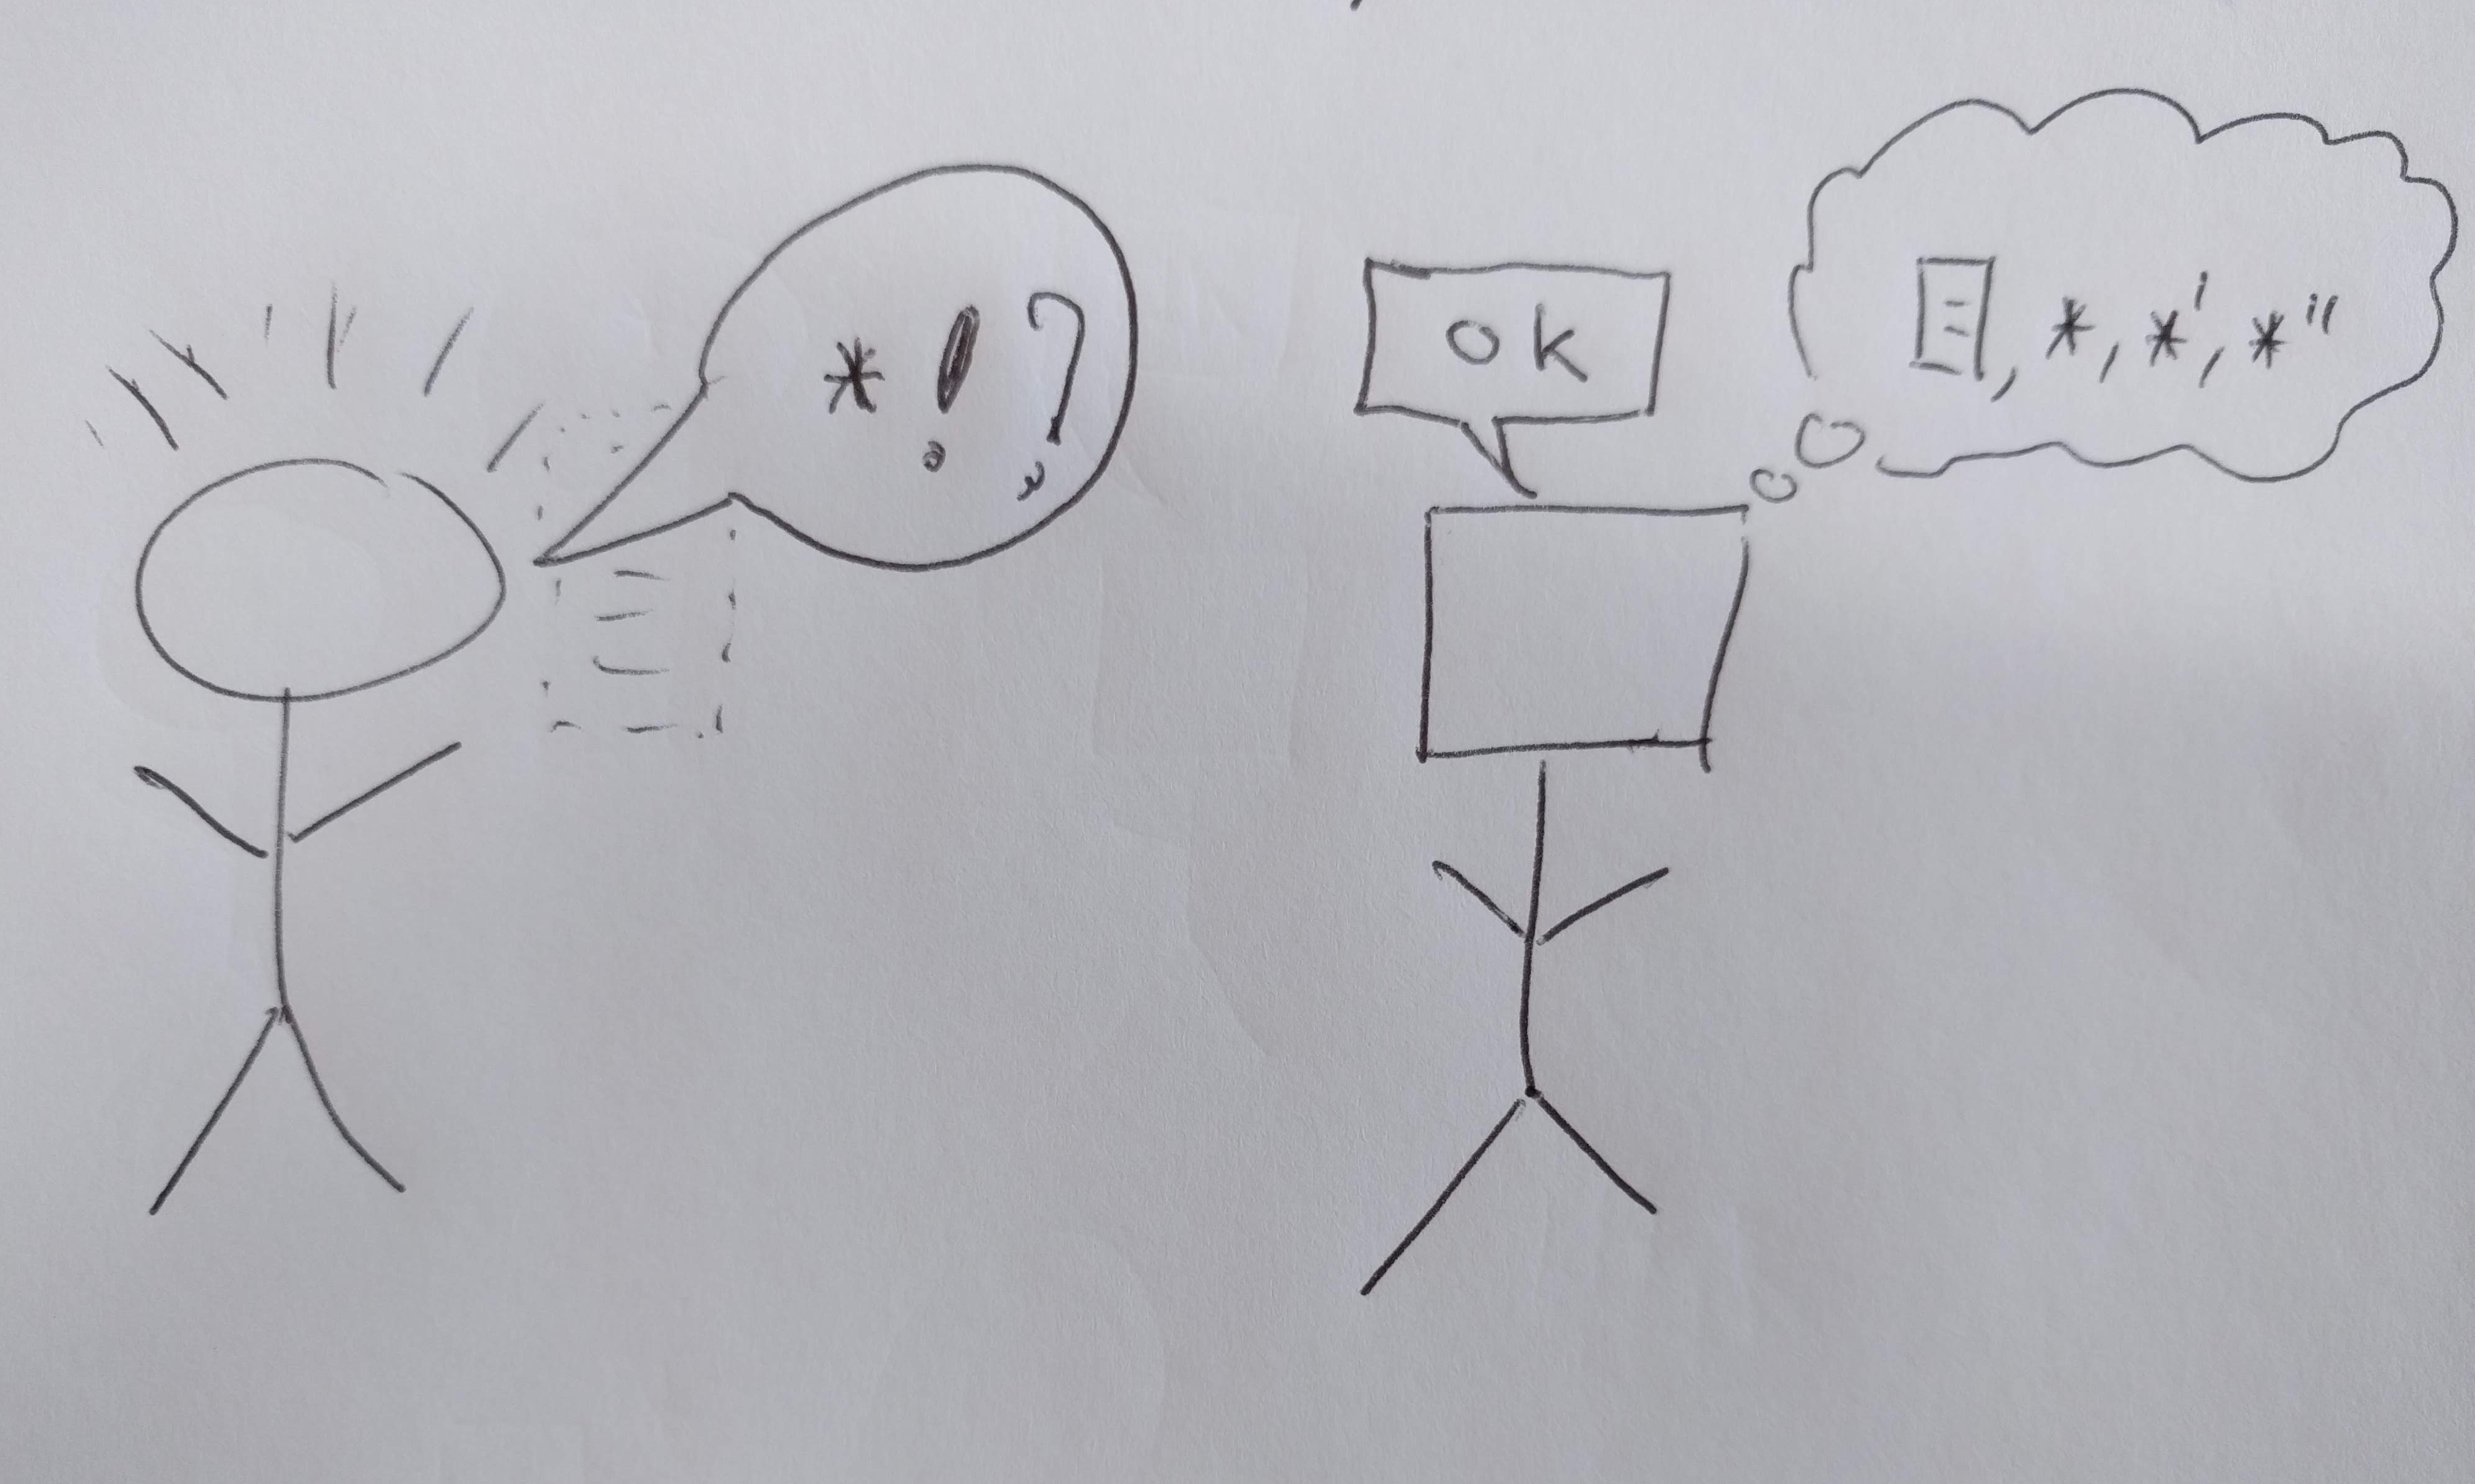 *!?
ok
, *, *', *"